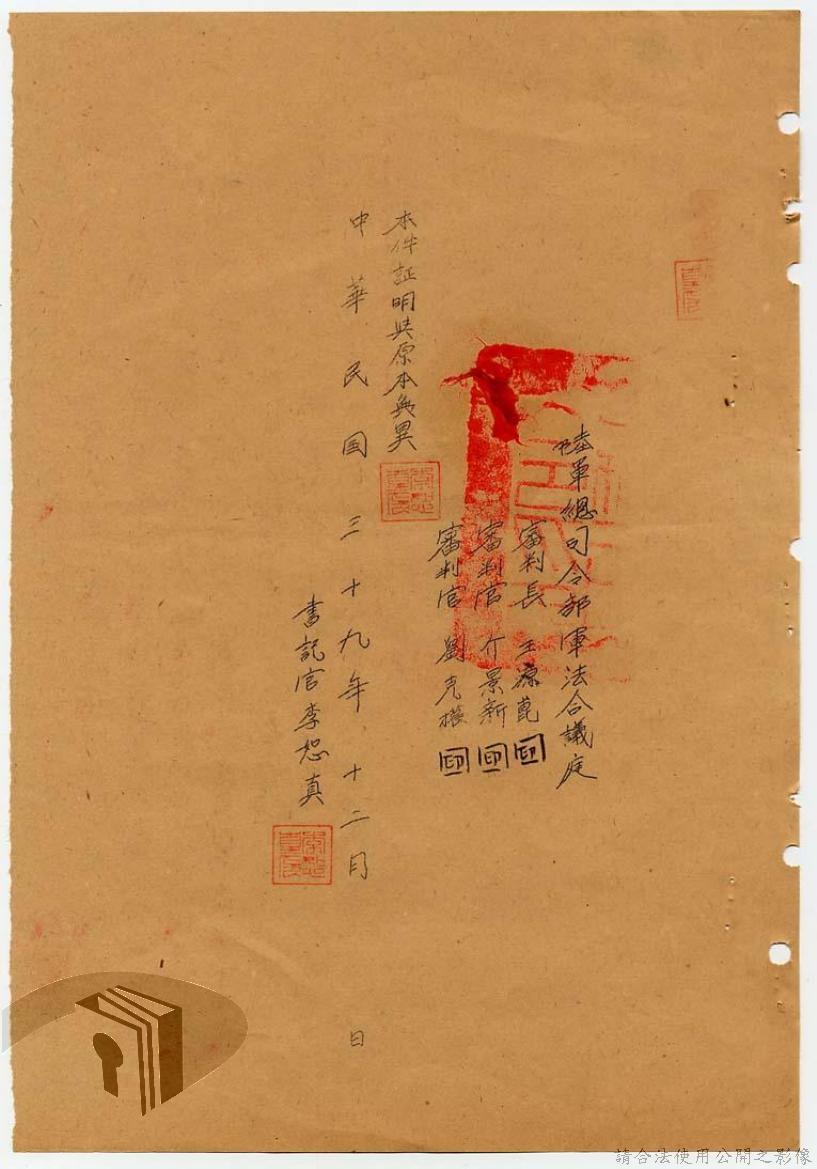 陸軍總司令部軍法合議庭
審判長 王源菎 印
審判官 介景新 印
審判官 劉克掁 印
本件証明與原本無異
中華民国三十九年十二月 日
書記官李恕真
請合法使用公開之影像